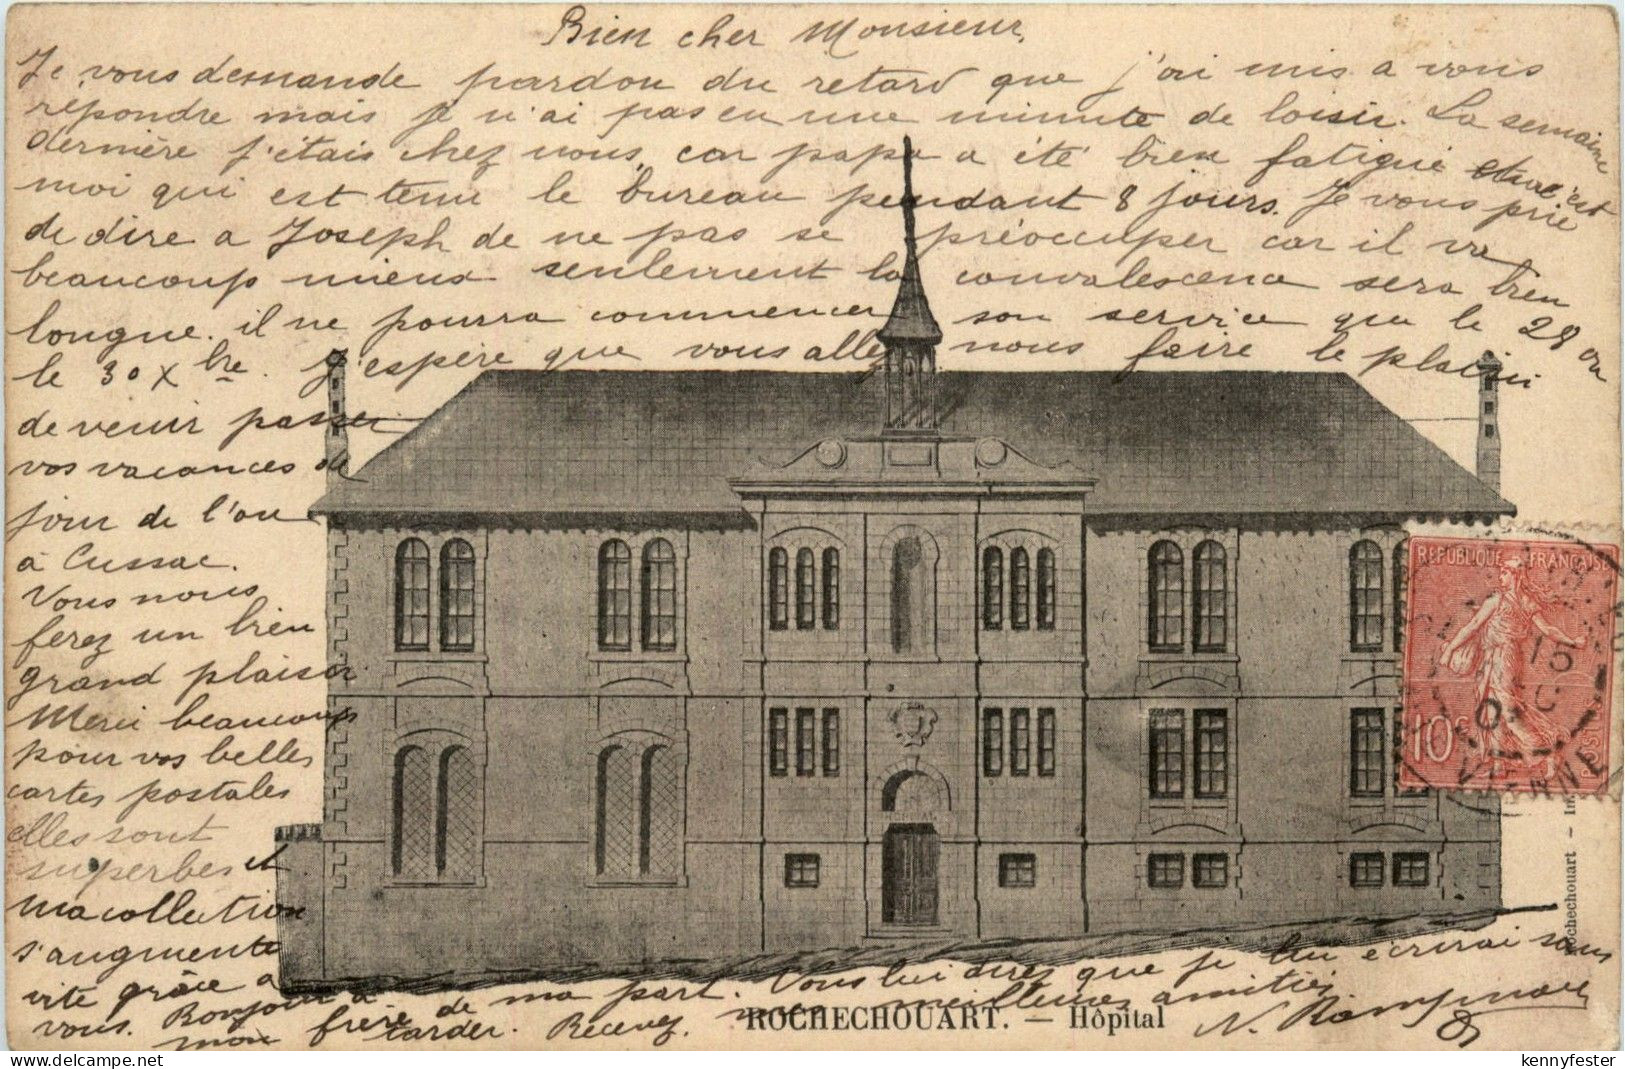 Bien cher Monsieur,
Je vous demande pardon du retard que j'ai mis a vous
répondre mais je n'ai pas eu une minute de loisir. La semaine
dernière j'étais chez nous, car papa a été bien fatigué et c'est
moi qui est tenu le bureau pendant 8 jours. Je vous prie
de dire a Joseph de ne pas se préoccuper car il va
beaucoup mieux seulement la convalescence sera bien
longue. il ne pourra commencer son service que le 28 ou
le 30 Xbre. J'espère que vous allez nous faire le plaisir
de venir passer
vos vacances de
jour de l'an
à Cussac.
Vous nous
ferez un bien
grand plaisir
Merci beaucoup
pour vos belles
cartes postales
elles sont
superbes et
ma collection
s'augmente
vite grâce a
vous. Bonjour a
mon frère de ma part. Vous lui direz que je lui écrirai sans
tarder. Recevez mes meilleures amitiés
N.
REPUBLIQUE FRANÇAISE
15
10c
POSTES
VIENNE
Rochechouart – Im
ROCHECHOUART. — Hôpital
kennyfester